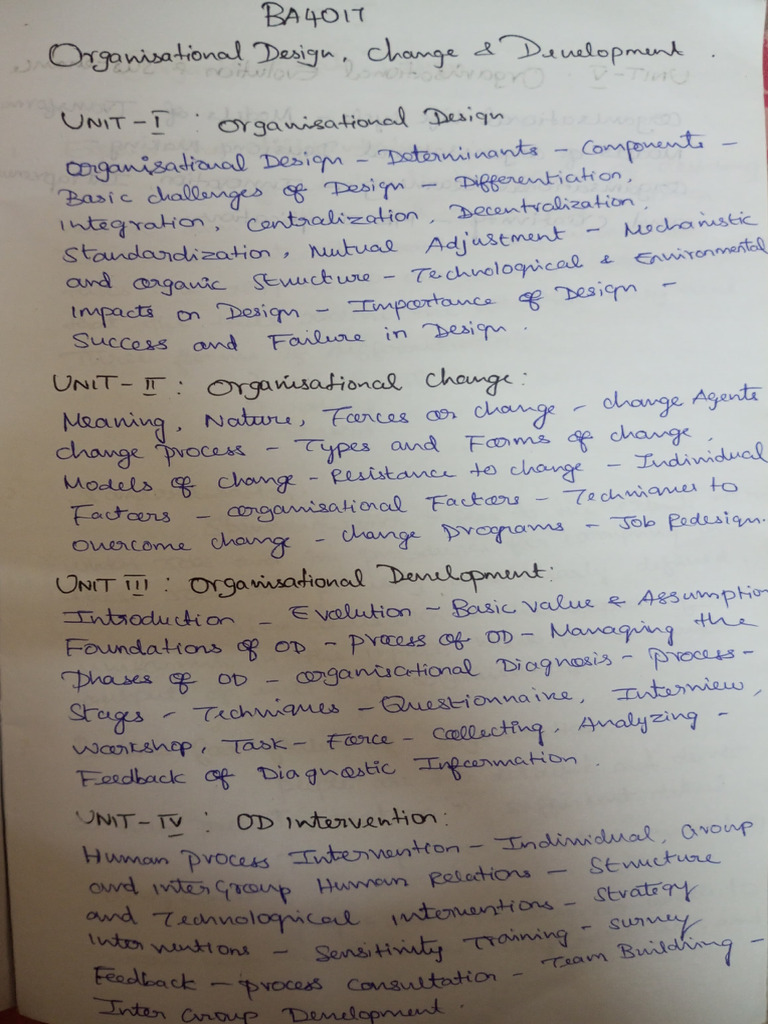 BA4017
Organisational Design, Change & Development.
UNIT-I : Organisational Design
Organisational Design - Determinants - Components -
Basic challenges of Design - Differentiation,
Integration, Centralization, Decentralization,
Standardization, Mutual Adjustment - Mechanistic
and Organic Structure - Technological & Environmental
Impacts on Design - Importance of Design -
Success and Failure in Design.
UNIT-II : Organisational Change:
Meaning, Nature, Forces or change - change Agents
change process - Types and Forms of change,
Models of change - Resistance to change - Individual
Factors - Organisational Factors - Techniques to
overcome change - change programs - Job Redesign.
UNIT III : Organisational Development:
Introduction - Evolution - Basic value & Assumption
Foundations of OD - process of OD - Managing the
Phases of OD - Organisational Diagnosis - process -
Stages - Techniques - Questionnaire, Interview,
Workshop, Task - Force - Collecting, Analyzing -
Feedback of Diagnostic Information.
UNIT-IV : OD Intervention:
Human process Intervention - Individual, Group
and Inter Group Human Relations - Structure
and Technological interventions - Strategy
Interventions - Sensitivity Training - survey
Feedback - process Consultation - Team Building -
Inter Group Development.